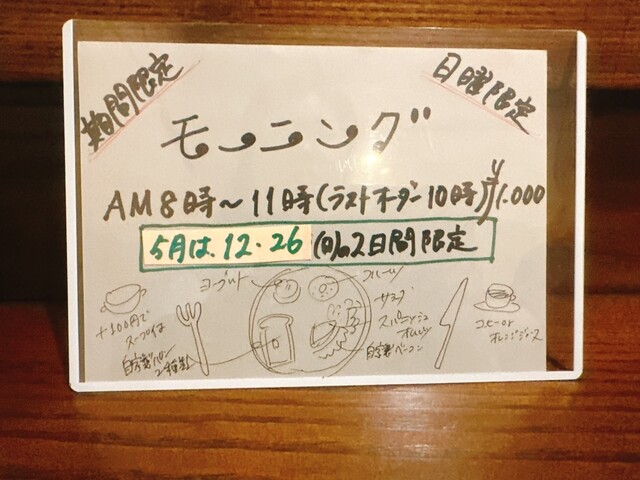 期間限定
日曜限定
モーニング
AM8時～11時(ラストオーダー10時)¥1.000
5月は、12・26(日)の2日間限定
ヨーグルト
フルーツ
サラダ
スパニッシュ
オムレツ
自家製ベーコン
+100円で
スープ付き
自家製パン
2種類
コーヒーor
オレンジジュース